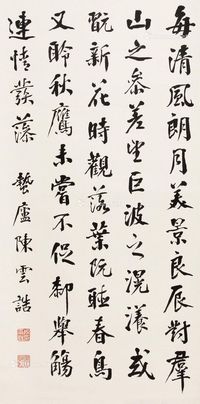 每清風朗月美景良辰對羣
山之參差望巨波之滉漾或
翫新花時觀落葉既聽春鳥
又聆秋鴈未嘗不促郝舉觴
連情發藻 蟄廬陳雲誥